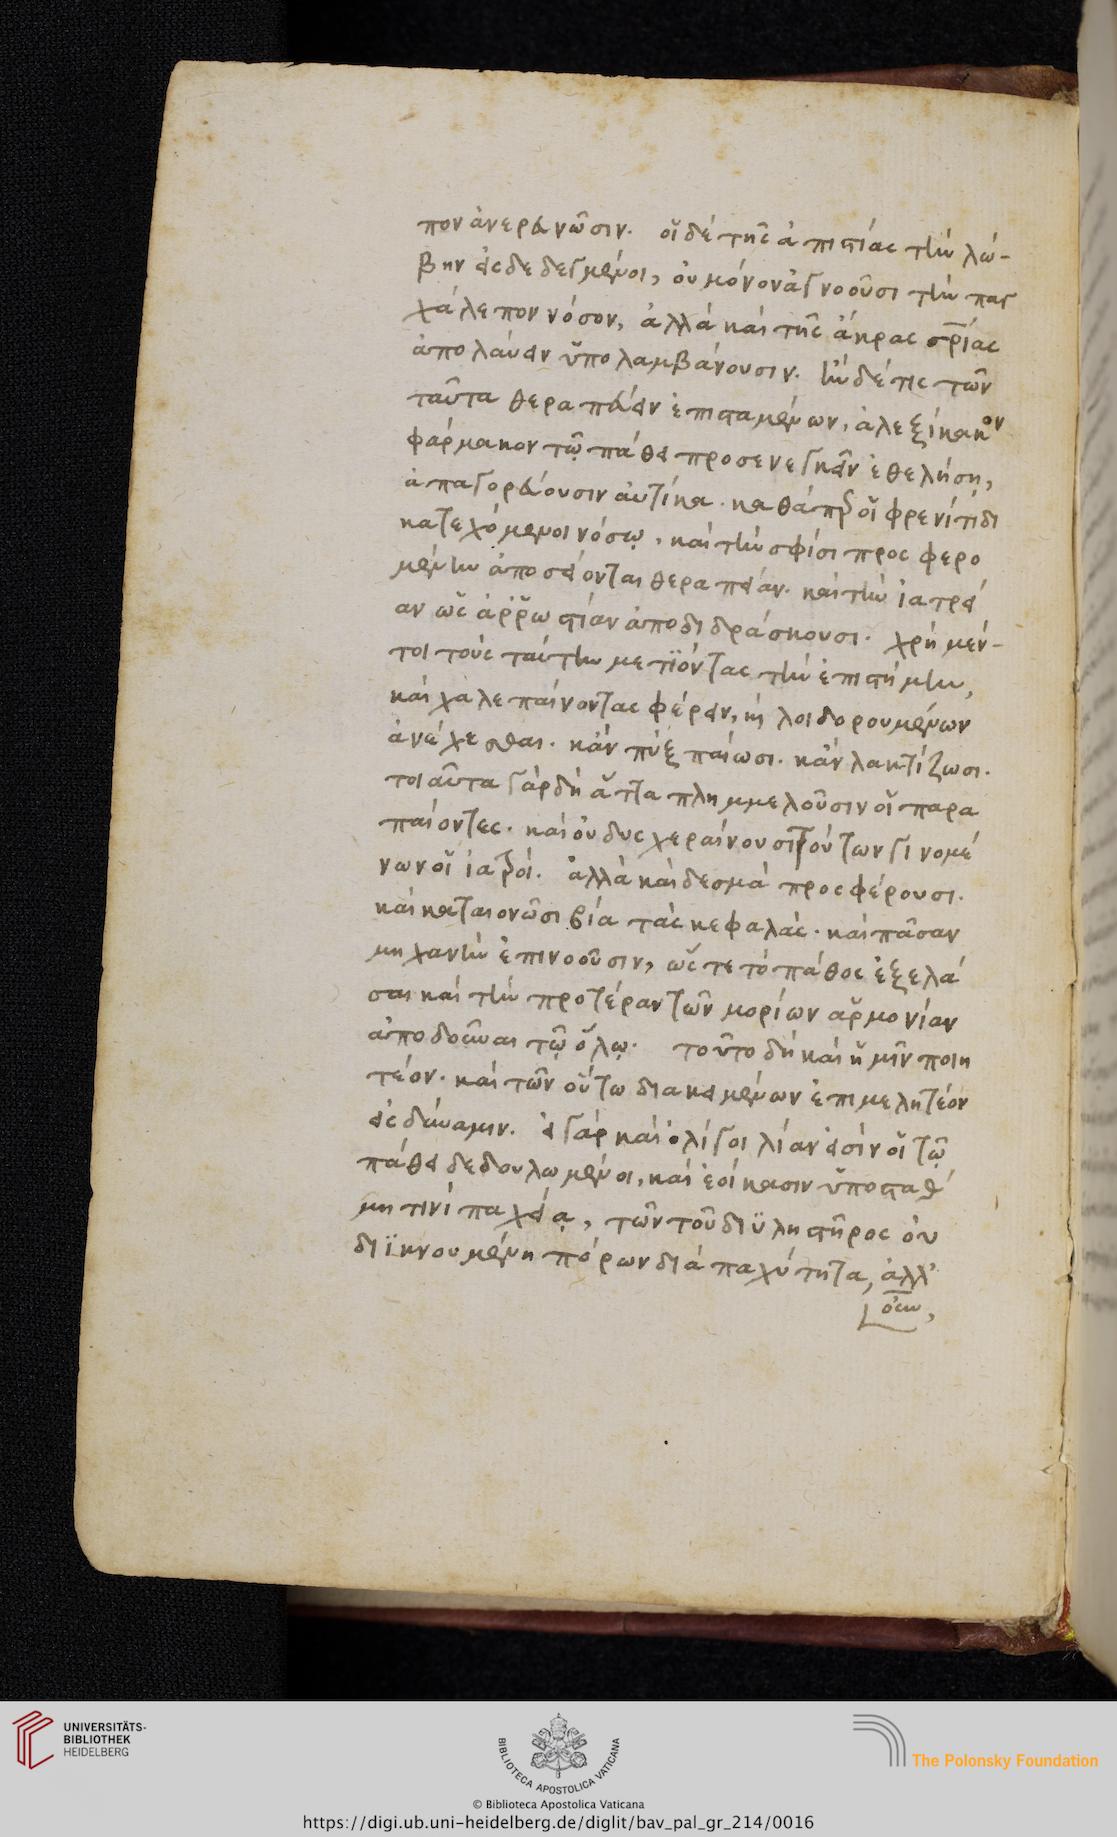 πον ἀνερευνῶσιν. οἱ δὲ τῆς ἀπιστίας τὴν λώ-
βην εἰσδεδεγμένοι, οὐ μόνον ἀγνοοῦσι τὴν παγ
χάλεπον νόσον, ἀλλὰ καὶ τῆς ἄκρας σρίας
ἀπολαύειν ὑπολαμβάνουσιν. ἢν δέ τις τῶν
ταῦτα θεραπεύειν ἐπισταμένων, ἀλεξίκακον
φάρμακον τῷ πάθει προσενεγκεῖν ἐθελήσῃ,
ἀπαγορεύουσιν αὐτίκα. καθάπερ οἱ φρενίτιδι
κατεχόμενοι νόσῳ, καὶ τὴν σφίσι προσφερο
μένην ἀποσείονται θεραπείαν. καὶ τὴν ἰατρεί
αν ὡς ἀῤῥωστίαν ἀποδιδράσκουσι. χρὴ μέν-
τοι τοὺς ταύτην μετϊόντας τὴν ἐπιστήμην,
καὶ χαλεπαίνοντας φέρειν, κỳ λοιδορουμένων
ἀνέχεσθαι. κἂν πὺξ παίωσι. κἂν λακτίζωσι.
τοιαῦτα γὰρ δὴ ἄττα πλημμελοῦσιν οἱ παρα
παίοντες. καὶ οὐ δυσχεραίνουσι τούτων γινομέ
νων οἱ ἰατροί. ἀλλὰ καὶ δεσμὰ προσφέρουσι.
καὶ καταιονῶσι βία τὰς κεφαλάς. καὶ πᾶσαν
μηχανὴν ἐπινοοῦσιν, ὥστε τὸ πάθος ἐξελά
σαι καὶ τὴν προτέραν τῶν μορίων ἁρμονίαν
ἀποδοῦναι τῷ ὅλῳ. τοῦτο δὴ καὶ ἡμῖν ποιη
τέον. καὶ τῶν οὕτω διακειμένων ἐπιμελητέον
εἰς δύναμιν. εἰ γὰρ καὶ ὀλίγοι λίαν εἰσὶν οἱ τῷ
πάθει δεδουλωμένοι, καὶ ἐοίκασιν ὑποστάθ
μη τινὶ παχείᾳ, τῶν τοῦ διϋληστῆρος οὐ
διϊκνουμένη πόρων διὰ παχύτητα, ἀλλ'
οὖν,
UNIVERSITÄTS-
BIBLIOTHEK
HEIDELBERG
BIBLIOTECA APOSTOLICA VATICANA
The Polonsky Foundation
© Biblioteca Apostolica Vaticana
https://digi.ub.uni-heidelberg.de/diglit/bav_pal_gr_214/0016